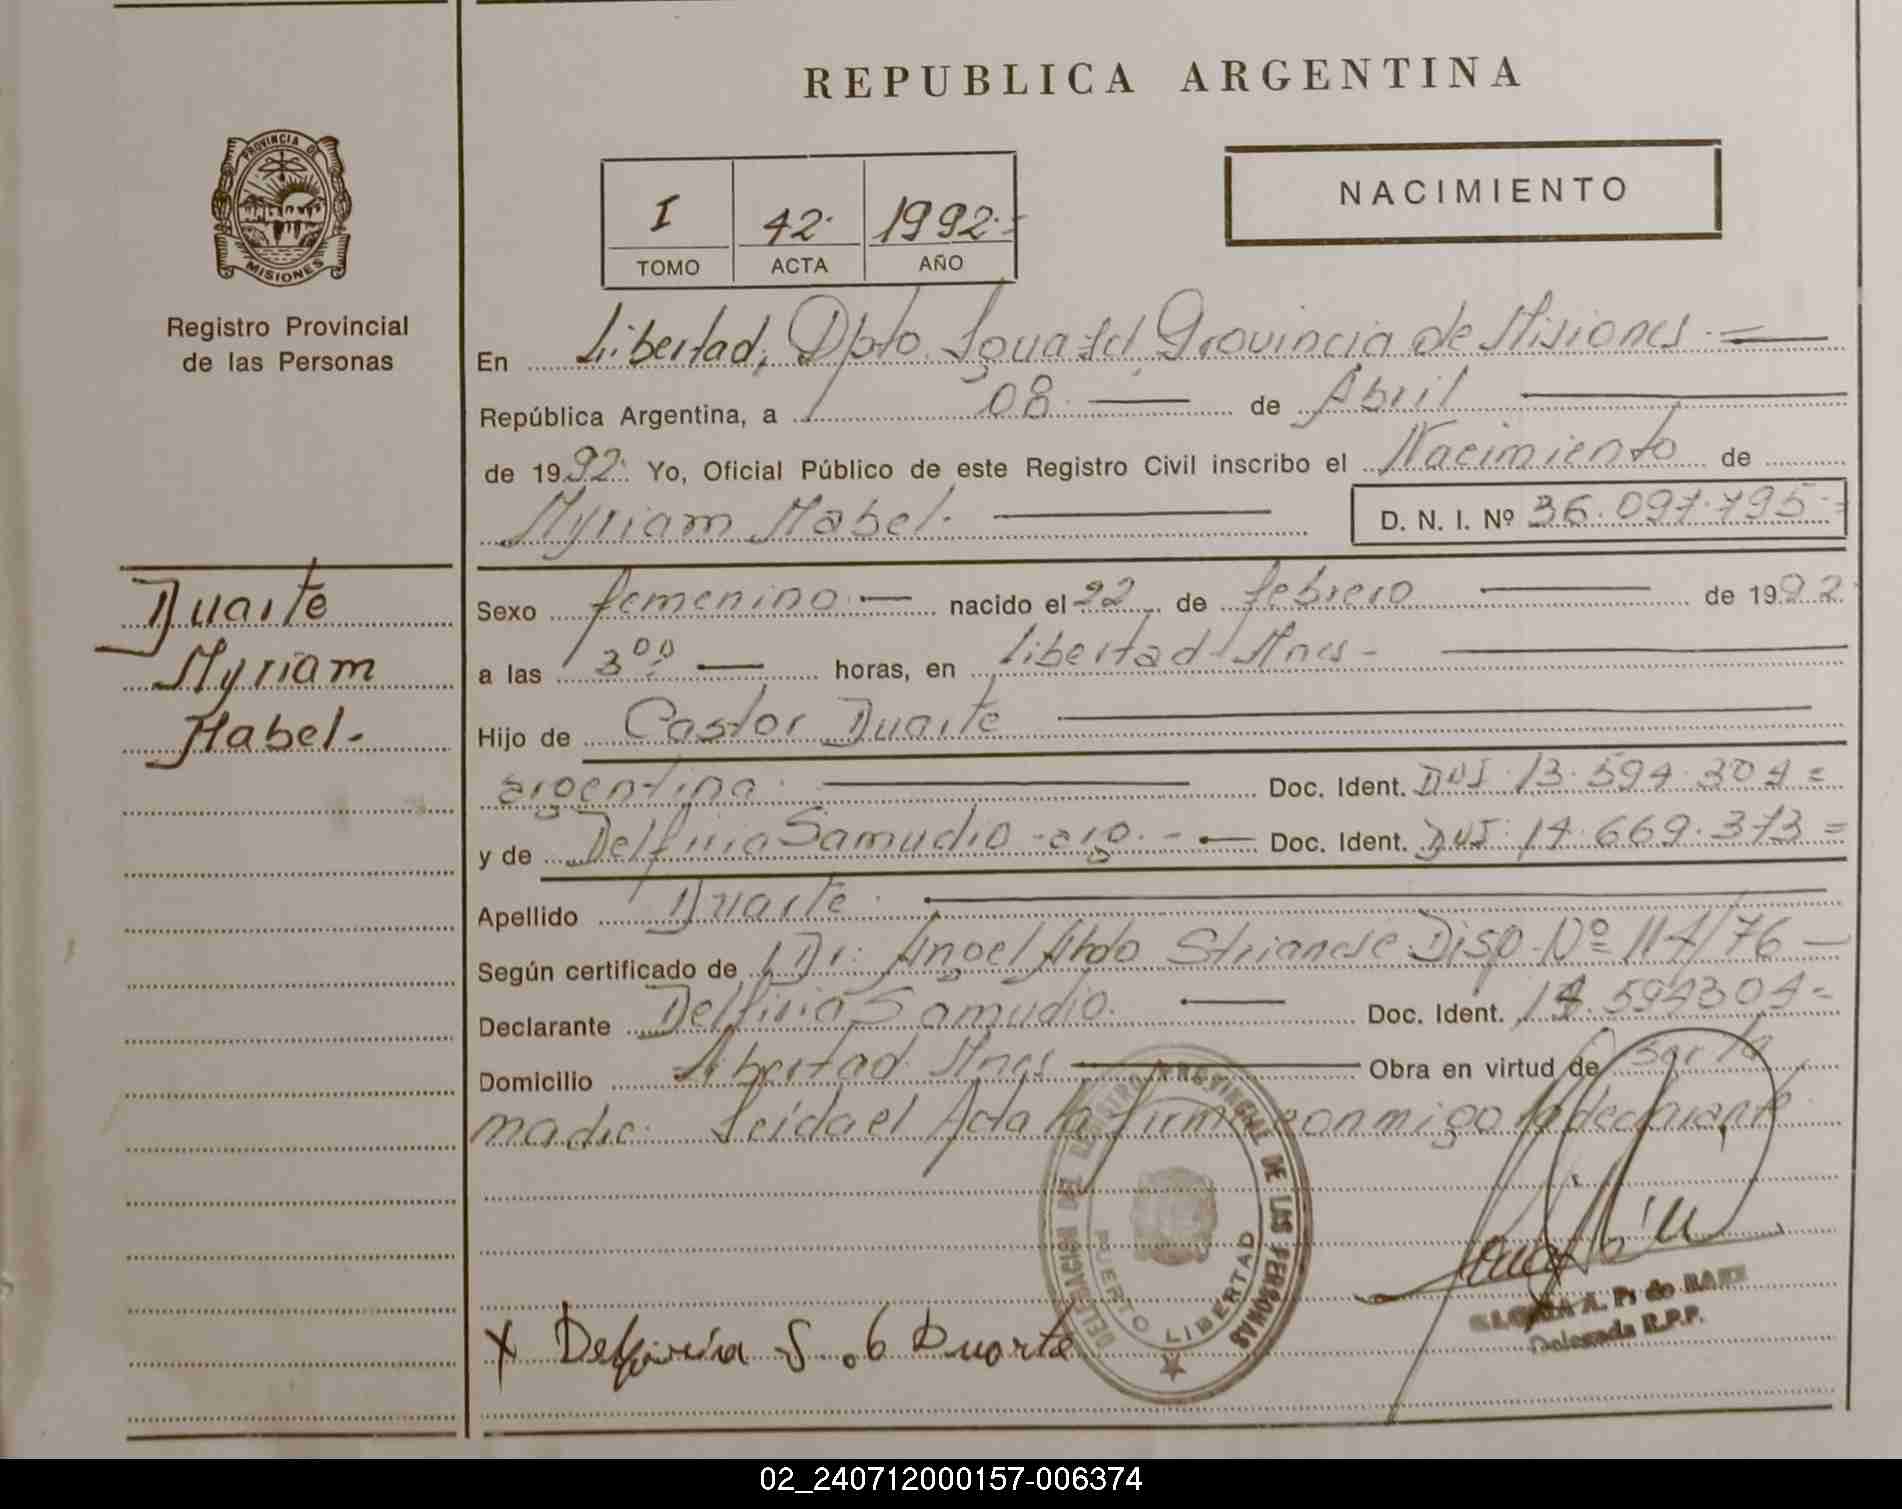 REPUBLICA ARGENTINA
PROVINCIA DE
MISIONES
Registro Provincial
de las Personas
I 42. 1992.=
TOMO ACTA AÑO
NACIMIENTO
En Libertad, Dpto. Iguazú Provincia de Misiones.=
República Argentina, a 08 de Abril
de 1992. Yo, Oficial Público de este Registro Civil inscribo el Nacimiento de
Myriam Mabel.
D. N. I. Nº 36.097.795.=
Duarte
Myriam
Mabel.-
Sexo femenino.- nacido el 22 de febrero de 1992
a las 3⁰⁰ horas, en libertad Mnes-
Hijo de Castor Duarte
argentina. Doc. Ident. 13.594.304=
y de Samudio -arg.- Doc. Ident. 14.669.373=
Apellido Duarte.
Según certificado de Dr. Angel Strianese Disp. Nº 114/76-
Declarante Samudio. Doc. Ident. 594304=
Domicilio libertad. Mnes Obra en virtud de ser la
madre. Leída el Acta la firma conmigo la declarante.
DELEGACION DEL REGISTRO PROVINCIAL DE LAS PERSONAS
PUERTO LIBERTAD
X S. de Duarte
A. P. de
Delegada R.P.P.
02_240712000157-006374